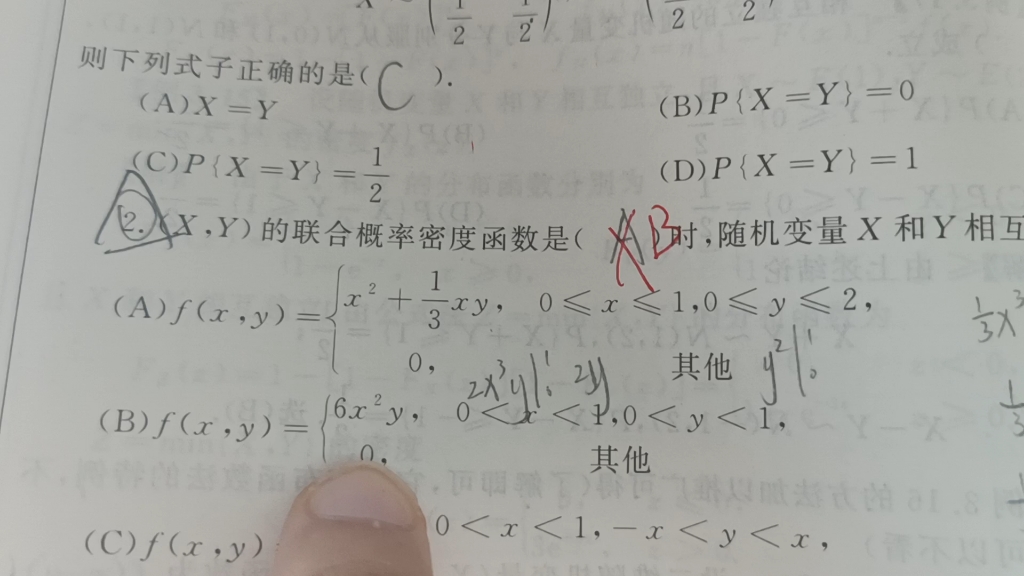 则下列式子正确的是( C ).
(A)X=Y (B)P{X=Y}=0
(C)P{X=Y}=1/2 (D)P{X=Y}=1
2.(X,Y)的联合概率密度函数是( A B 时,随机变量X和Y相互
(A)f(x,y)={x²+1/3xy, 0≤x≤1,0≤y≤2,
0, 其他
1/3x³
2x³y|¹₀ 2y y²|¹₀
(B)f(x,y)={6x²y, 0<x<1,0<y<1,
0, 其他
1/3
(C)f(x,y) 0<x<1,-x<y<x,